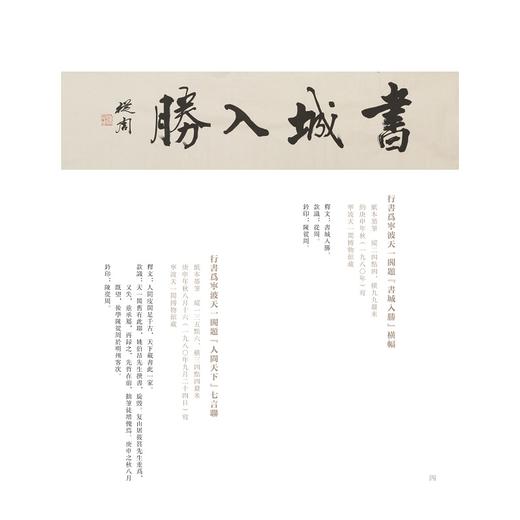 書城入勝
從周
行書爲寧波天一閣題「書城入勝」橫幅
紙本墨筆 縱二四點四、橫九九釐米
約庚申年秋(一九八〇年)寫
寧波天一閣博物館藏
釋文:書城入勝。
款識:從周。
鈐印:陳從周。
行書爲寧波天一閣題「人間天下」七言聯
紙本墨筆 縱一三五點六、橫三四點四釐米
庚申年秋八月十六(一九八〇年九月二十四日)寫
寧波天一閣博物館藏
釋文:人間庋閣足千古,天下藏書此一家。
款識:天一閣舊有此聯,姚伯昂先生撰書,旋毀。复由屠筱甚先生重爲,
又失,並承屬,再録之。先哲在前,搦筆徒增愧焉。庚申之秋八月
既望,後學陳從周於明州客次。
鈐印:陳從周。
四